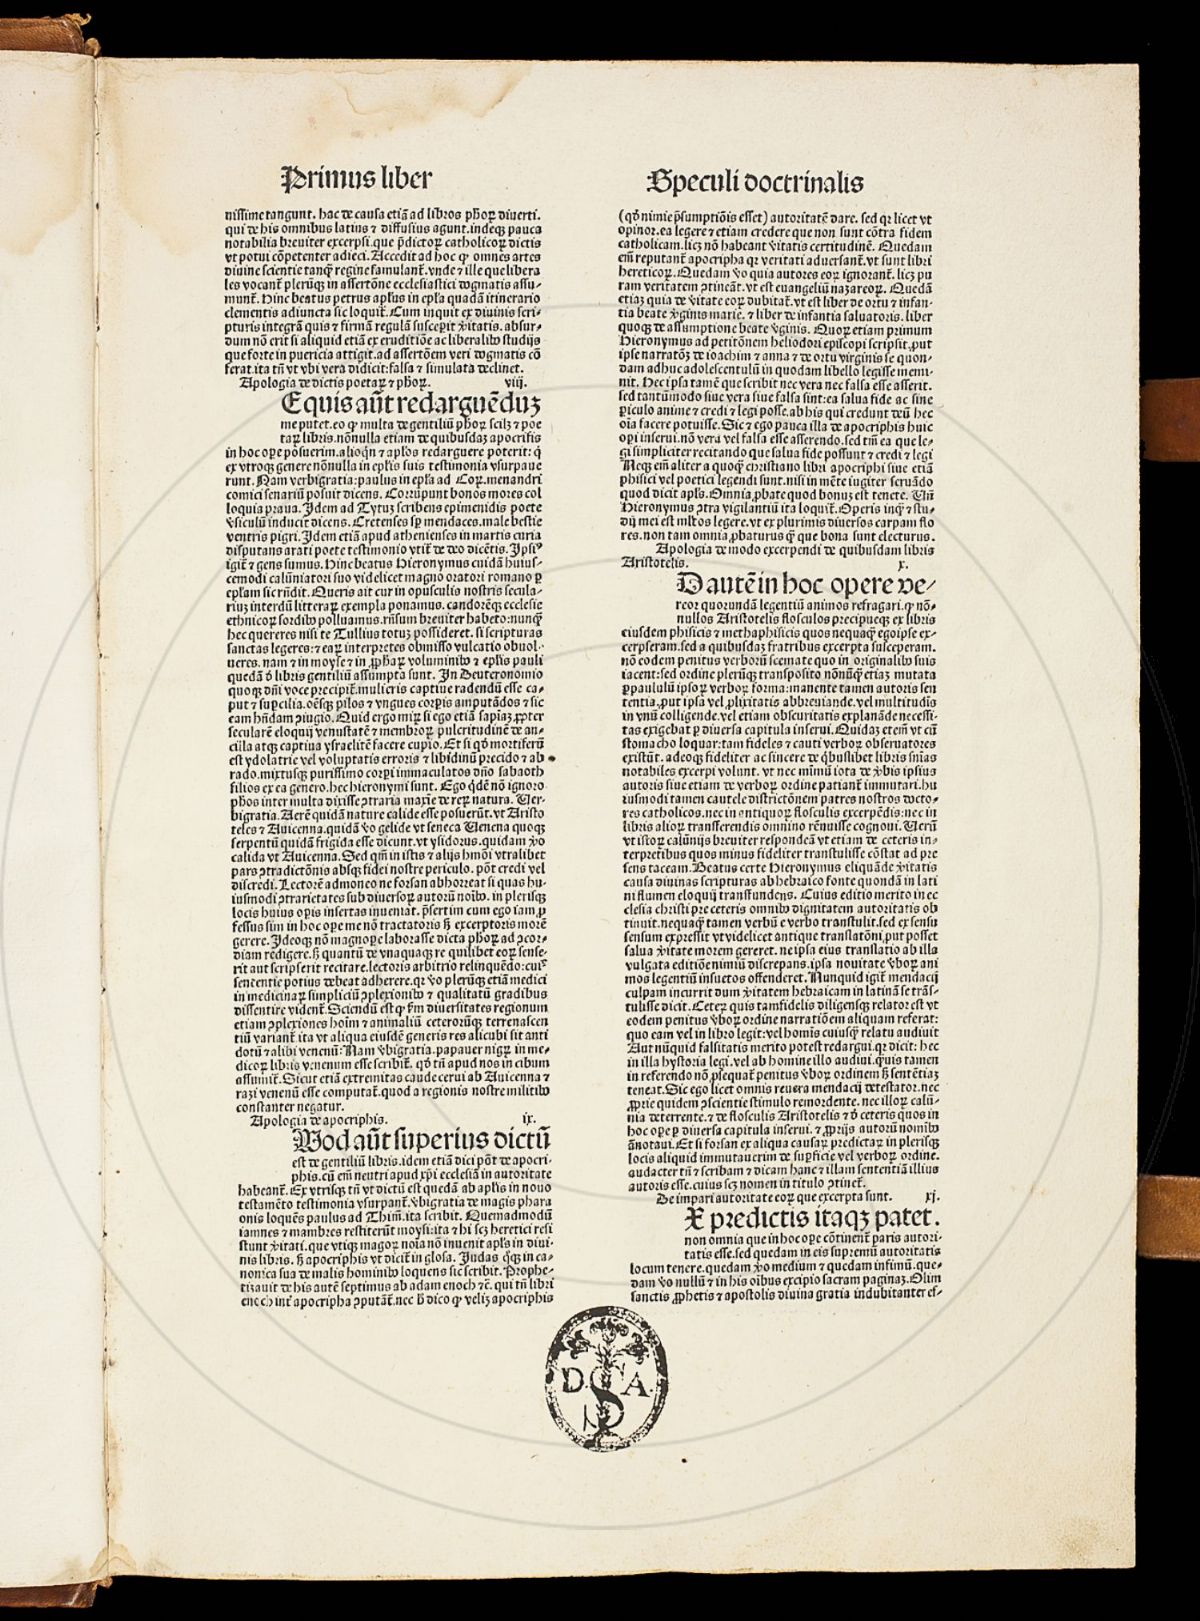 Primus liber
nissime tangunt. hac de causa etiã ad libros ph̃oꝝ diuerti.
qui de his omnibus latius ⁊ diffusius agunt. indeqꝫ pauca
notabilia breuiter excerpsi. que p̃dictoꝝ catholicoꝝ dictis
vt potui cõpetenter adieci. Accedit ad hoc ꝙ omnes artes
diuine scientie tanqꝫ regine famulant̃. vnde ⁊ ille que libera
les vocant̃ plerũqꝫ in assertõne ecclesiastici dogmatis assu-
munt̃. Hinc beatus petrus apl̃us in epl̃a quadã itinerario
clementis adiuncta sic loquit̃. Cum inquit ex diuinis scri-
pturis integrã quis ⁊ firmã regulã susceperit v̾itatis. absur-
dum nõ erit si aliquid etiã ex eruditiõe ac liberalibꝰ studijs
que forte in puericia attigit. ad assertõem veri dogmatis cõ
ferat. ita tñ vt vbi vera didicit: falsa ⁊ simulata declinet.
Apologia de dictis poetaꝝ ⁊ ph̃oꝝ. viij.
E quis aũt redarguẽduꝫ
me putet. eo ꝙ multa de gentiliũ ph̃oꝝ scilꝫ ⁊ poe
taꝝ libris. nõnulla etiam de quibusdaꝫ apocrifis
in hoc oꝑe posuerim. alioq̃n ⁊ apl̃os redarguere poterit: q̃
ex vtroqꝫ genere nõnulla in epl̃is suis testimonia vsurpaue
runt. Nam verbigratia: paulus in epl̃a ad Coꝝ. menandri
comici senariũ posuit dicens. Corrũpunt bonos mores col
loquia praua. Idem ad Tytuꝫ scribens epimenidis poete
v̾siculũ inducit dicens. Cretenses sꝑ mendaces. male bestie
ventris pigri. Idem etiã apud athenienses in martis curia
disputans arati poete testimonio vtit̃ de deo dicẽtis. Ipsiꝰ
igit̃ ⁊ gens sumus. Hinc beatus Hieronymus cuidã huius-
cemodi calũniatori suo videlicet magno oratori romano ꝑ
epl̃am sic rñdit. Queris ait cur in opusculis nostris secula-
riuꝫ interdũ litteraꝝ exempla ponamus. candorẽqꝫ ecclesie
ethnicoꝝ sordibꝰ polluamus. rñsum breuiter habeto: nunqꝫ
hec quereres nisi te Tullius totuꝫ possideret. si scripturas
sanctas legeres: ⁊ eaꝝ interpretes obmisso vulcatio obuol-
ueres. nam ⁊ in moyse ⁊ in ꝓph̃aꝝ voluminibꝰ ⁊ epl̃is pauli
quedã d̾ libris gentiliũ assumpta sunt. In Deuteronomio
quoqꝫ dñi voce precipit̃. mulieris captiue radendũ esse ca-
put ⁊ suꝑcilia. oẽsqꝫ pilos ⁊ vngues corꝑis amputãdos ⁊ sic
eam hñdam ꝯiugio. Quid ergo miꝝ si ego etiã sapiaꝫ ꝓpter
secularẽ eloquij venustatẽ ⁊ membroꝝ pulcritudinẽ de an-
cilla atqꝫ captiua ysraelitẽ facere cupio. Et si qd̾ mortiferũ
est ydolatrie vel voluptatis erroris ⁊ libidinũ precido ⁊ ab
rado. mixtusqꝫ purissimo corꝑi immaculatos dño sabaoth
filios ex ea genero. hec hieronymi sunt. Ego qd̾ẽ nõ ignoro
ph̃os inter multa dixisse ꝯtraria maxĩe de reꝝ natura. Ver-
bigratia. Aerẽ quidã nature calide esse posuerũt. vt Aristo
teles ⁊ Auicenna. quidã v̾o gelide vt seneca Uenena quoqꝫ
serpentũ quidã frigida esse dicunt. vt ysidorus. quidam v̾o
calida vt Auicenna. Sed qm̃ in istis ⁊ alijs hmõi vtralibet
pars ꝯtradictõnis absqꝫ fidei nostre periculo. põt credi vel
discredi. Lectorẽ admoneo ne forsan abhorreat si quas hu-
iusmodi ꝯtrarietates sub diuersoꝝ autorũ noĩbꝰ. in plerisqꝫ
locis huius oꝑis insertas inueniat. p̃sertim cum ego iam ꝓ
fessus sim in hoc oꝑe me nõ tractatoris sꝫ excerptoris morẽ
gerere. Ideoqꝫ nõ magnopꝑe laborasse dicta ph̃oꝝ ad ꝯcor-
diam redigere. sꝫ quantũ de vnaquaqꝫ re quilibet eoꝝ sense-
rit aut scripserit recitare. lectoris arbitrio relinquẽdo: cuiꝰ
sentencie potius debeat adherere. qꝛ v̾o plerũqꝫ etiã medici
in medicinaꝝ simpliciũ ꝯplexionibꝰ ⁊ qualitatũ gradibus
dissentire vident̃. Sciendũ est ꝙ sm̃ diuersitates regionum
etiam ꝯplexiones hoĩm ⁊ animaliũ ceterorũqꝫ terrenascen
tiũ variant̃ ita vt aliqua eiusdẽ generis res alicubi sit anti
dotũ ⁊ alibi venenũ: Nam v̾bigratia. papauer nigꝝ in me-
dicoꝝ libris vrnenum esse scribit̃. qd̾ tñ apud nos in cibum
assumit̃. Sicut etiã extremitas caude cerui ab Auicenna ⁊
razi venenũ esse computat̃. quod a regionis nostre militibꝰ
constanter negatur.
Apologia de apocriphis. ix.
Wod aũt superius dictũ
est de gentiliũ libris. idem etiã dici põt de apocri-
phis. cũ em̃ neutri apud xp̃i ecclesiã in autoritate
habeant̃. Ex vtrisqꝫ tñ vt dictũ est quedã ab apl̃is in nouo
testamẽto testimonia vsurpant̃. v̾bigratia de magis phara
onis loquẽs paulus ad Thim̃. ita scribit. Quemadmodũ
iamnes ⁊ mambres restiterũt moysi: ita ⁊ hi scꝫ heretici resi
stunt v̾itati. que vtiqꝫ magoꝝ noĩa nõ inuenit apl̃us in diui-
nis libris. sꝫ apocriphis vt dicit̃ in glosa. Iudas q̃qꝫ in ca-
nonica sua de malis hominibꝰ loquens sic scribit. Prophe-
tizauit de his autẽ septimus ab adam enoch ⁊c̃. qui tñ libri
enoch int̾ apocripha ꝯputãt̃. nec h̾ dico ꝙ veliꝫ apocriphis
Speculi doctrinalis
(qd̾ nimie p̃sumptiõis esset) autoritatẽ dare. sed qꝛ licet vt
opinor. ea legere ⁊ etiam credere que non sunt cõtra fidem
catholicam. licꝫ nõ habeant v̾itatis certitudinẽ. Quedam
em̃ reputant̃ apocripha qꝛ veritati aduersant̃. vt sunt libri
hereticoꝝ. Quedam v̾o quia autores eoꝝ ignorant̃. licꝫ pu
ram veritatem ꝯtineãt. vt est euangeliũ nazareoꝝ. Quedã
etiaꝫ quia de v̾itate eoꝝ dubitat̃. vt est liber de ortu ⁊ infan-
tia beate v̾ginis marie. ⁊ liber de infantia saluatoris. liber
quoqꝫ de assumptione beate v̾ginis. Quoꝝ etiam primum
Hieronymus ad petitõnem heliodori episcopi scripsit. put
ipse narratõꝫ de ioachim ⁊ anna ⁊ de ortu virginis se quon-
dam adhuc adolescentulũ in quodam libello legisse memi-
nit. Hec ipsa tamẽ que scribit nec vera nec falsa esse asserit.
sed tantũmodo siue vera siue falsa sint: ea salua fide ac sine
ꝑiculo anime ⁊ credi ⁊ legi posse. ab his qui credunt deũ hec
oĩa facere potuisse. Sic ⁊ ego pauca illa de apocriphis huic
oꝑi inserui. nõ vera vel falsa esse asserendo. sed tm̃ ea que le-
gi simpliciter recitando que salua fide possunt ⁊ credi ⁊ legi
Neqꝫ em̃ aliter a quoqꝫ christiano libri apocriphi siue etiã
phisici vel poetici legendi sunt. nisi in mẽte iugiter seruãdo
quod dicit apl̃s. Omnia ꝓbate quod bonuꝫ est tenete. Un̄
Hieronymus ꝯtra vigilantiũ ita loquit̃. Operis inqꝫ ⁊ stu-
dij mei est ml̃tos legere. vt ex plurimis diuersos carpam flo
res. non tam omnia ꝓbaturus qꝫ que bona sunt electurus.
Apologia de modo excerpendi de quibusdam libris
Aristotelis. x.
D autẽ in hoc opere ve-
reor quorundã legentiũ animos refragari. ꝙ nõ-
nullos Aristotelis flosculos precipueqꝫ ex libris
eiusdem phisicis ⁊ methaphisicis quos nequaqꝫ ego ipse ex-
cerpseram. sed a quibusdaꝫ fratribus excerpta susceperam.
nõ eodem penitus verborũ scemate quo in originalibꝰ suis
iacent: sed ordine plerũqꝫ transposito nõnũqꝫ etiaꝫ mutata
ꝑpaululũ ipsoꝝ verboꝝ forma: manente tamen autoris sen
tentia. ꝓut ipsa vel ꝓlixitatis abbreuiande. vel multitudis
in vnũ colligende. vel etiam obscuritatis explanãde necessi-
tas exigebat ꝑ diuersa capitula inserui. Quidaꝫ etem̃ vt cũ
stomacho loquar: tam fideles ⁊ cauti verboꝝ obseruatores
existũt. adeoqꝫ fideliter ac sincere de qͥbuslibet libris sñias
notabiles excerpi volunt. vt nec mĩmũ iota de v̾bis ipsius
autoris siue etiam de verboꝝ ordine patiant̃ immutari. hu
iusmodi tamen cautele districtõnem patres nostros docto-
res catholicos. nec in antiquoꝝ flosculis excerpẽdis: nec in
libris alioꝝ transferendis omnino rẽnuisse cognoui. Uerũ
vt istoꝝ calũnijs breuiter respondeã vt etiam de ceteris in-
terpretibus quos minus fideliter transtulisse cõstat ad pre
sens taceam. Beatus certe Hieronymus eliquãde v̾itatis
causa diuinas scripturas ab hebraico fonte quondã in lati
ni flumen eloquij transfundens. Cuius editio merito in ec
clesia christi pre ceteris omnibꝰ dignitatem autoritatis ob
tinuit. nequaqꝫ tamen verbũ e verbo transtulit. sed ex sensu
sensum expressit vt videlicet antique translatõni. put posset
salua v̾itate morem gereret. ne ipsa eius translatio ab illa
vulgata editiõe nimiũ discrepans. ipsa nouitate v̾boꝝ ani
mos legentiũ insuetos offenderet. Nunquid igit̃ mendacij
culpam incurrit dum v̾itatem hebraicam in latinã se trãs-
tulisse dicit. Ceteꝝ quis tam fidelis diligensqꝫ relator est vt
eodem penitus v̾boꝝ ordine narratiõem aliquam referat:
quo eam vel in libro legit: vel hoĩs cuiusqꝫ relatu audiuit
Aut nũquid falsitatis merito potest redargui. qꝛ dicit: hec
in illa hystoria legi. vel ab homine illo audiui. quis tamen
in referendo nõ ꝓsequat̃ penitus v̾boꝝ ordinem sꝫ sentẽtiaꝫ
teneat. Sic ego licet omnis reuera mendacij detestator. nec
ꝓprie quidem ꝯscientie stimulo remordente. nec illoꝝ calũ-
nia deterrente. ⁊ de flosculis Aristotelis ⁊ d̾ ceteris quos in
hoc oꝑe ꝑ diuersa capitula inserui. ⁊ ꝓprijs autorũ nomĩbꝰ
ãnotaui. Et si forsan ex aliqua causaꝝ predictaꝝ in plerisqꝫ
locis aliquid immutauerim de suꝑficie vel verboꝝ ordine.
audacter tñ ⁊ scribam ⁊ dicam hanc ⁊ illam sententiã illius
autoris esse. cuius scꝫ nomen in titulo ꝯtinet̃.
De impari autoritate eoꝝ que excerpta sunt. xj.
X predictis itaqꝫ patet.
non omnia que in hoc oꝑe cõtinent̃ paris autori-
tatis esse. sed quedam in eis supremũ autoritatis
locum tenere. quedam v̾o medium ⁊ quedam infimũ. que-
dam v̾o nullũ ⁊ in his oĩbus excipio sacram paginaꝫ. Olim
sanctis ꝓphetis ⁊ apostolis diuina gratia indubitanter ef-
D. G. A.